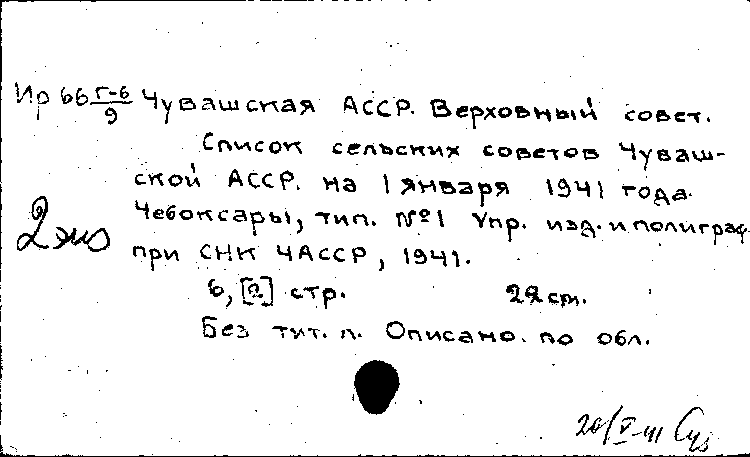 Ир 66 г-6/9 Чувашская АССР. Верховный совет.
Список сельских советов Чуваш-
ской АССР. на 1 января 1941 года.
Чебоксары, тип. №1 Упр. изд. и полиграф.
2 экз
при СНК ЧАССР, 1941.
6, [2] стр. 22 cm.
Без тит. л. Описано. по обл.
20/V-41